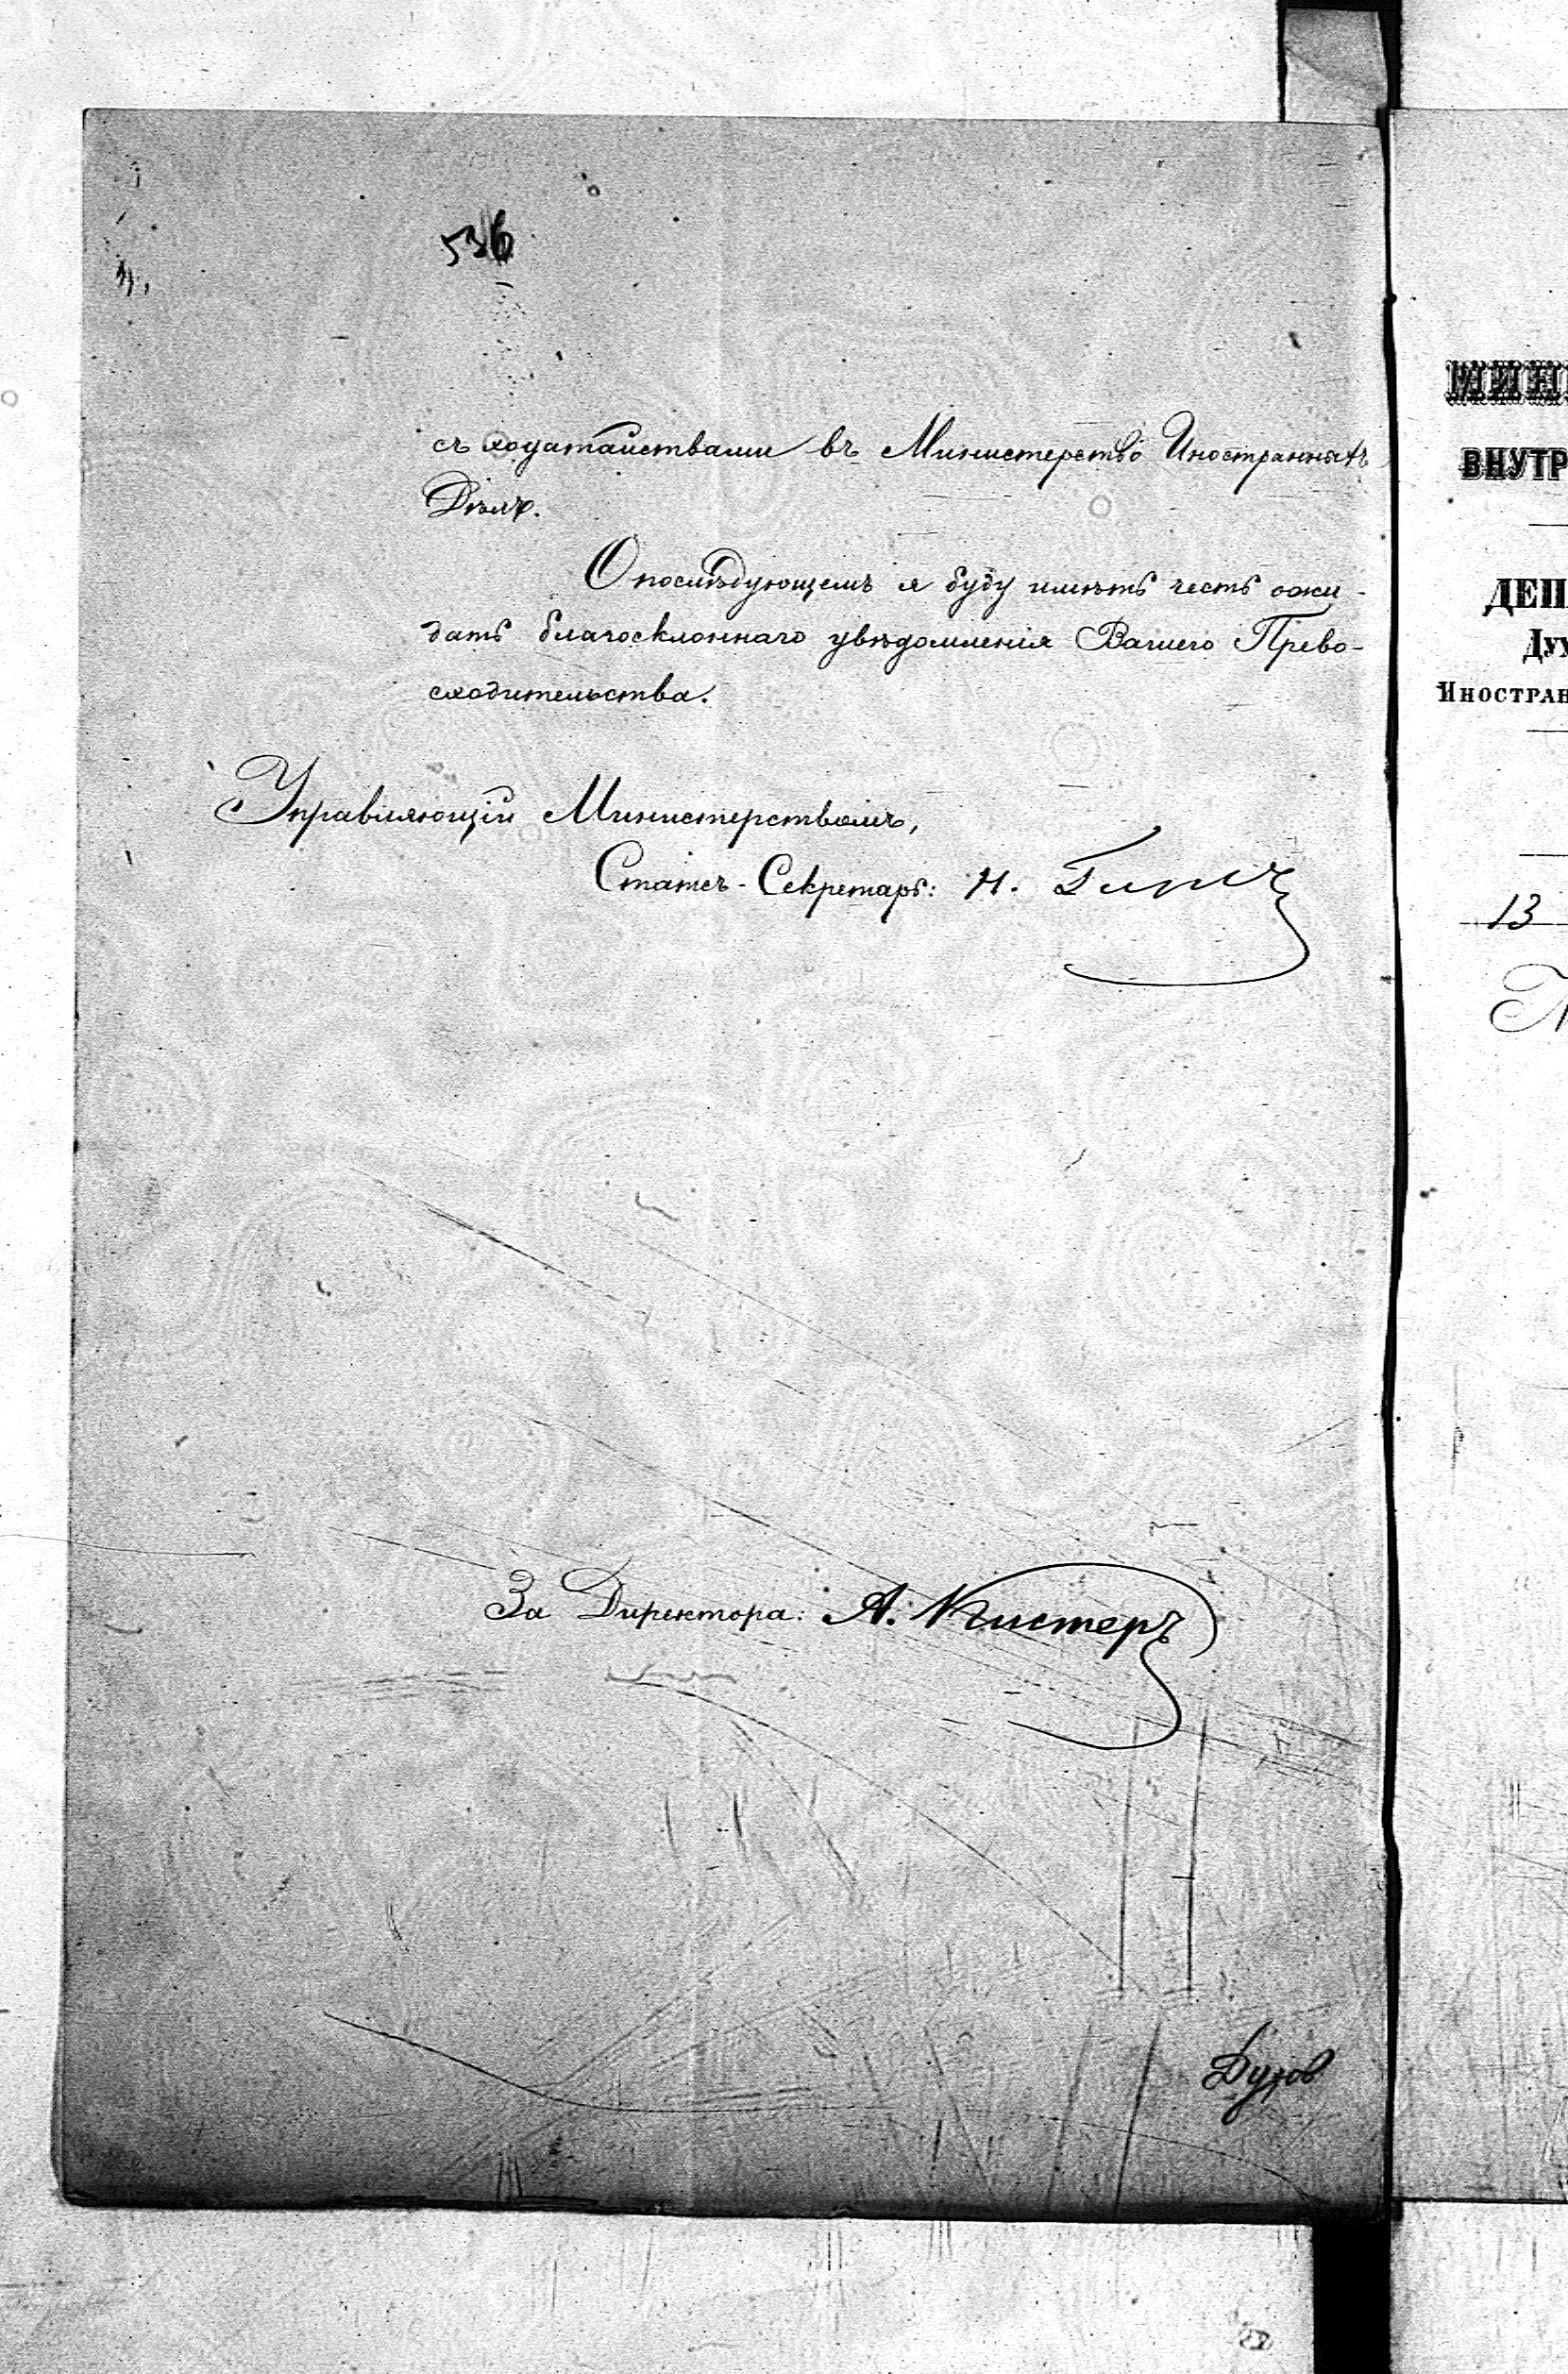 536
съ ходатайствами въ Министерство Иностранныхъ
Дѣлъ.
О послѣдующемъ я буду имѣть честь ожи-
дать благосклоннаго увѣдомленія Вашего Прево-
сходительства.
Управляющій Министерствомъ,
Статсъ-Секретарь: Н. Гирсъ
За Директора: А. Кистеръ
МИНИ
ВНУТР
ДЕП
Дух
Иностран
13